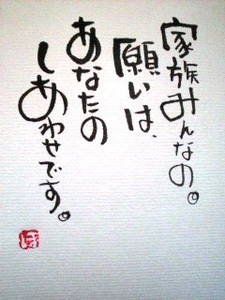 家族みんなの。
願いは、
あなたの
しあわせです。